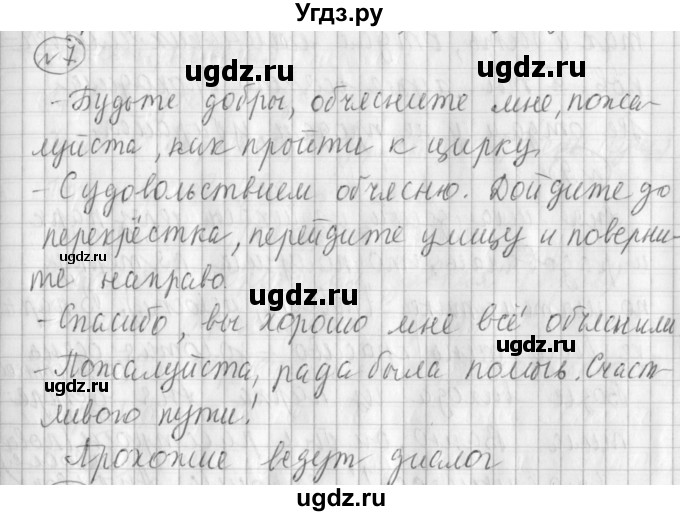 Угдз.ру
№7
ugdz.ru
- Будьте добры, объясните мне, пожа-
луйста, как пройти к цирку.
ugdz.ru
- С удовольствием объясню. Дойдите до
перекрёстка, перейдите улицу и поверни-
ugdz.ru
те направо.
ugdz.ru
- Спасибо, вы хорошо мне всё объяснили
ugdz.ru
- Пожалуйста, рада была помочь. Счаст-
ugdz.ru
ливого пути!
Прохожие ведут диалог
ugdz.ru